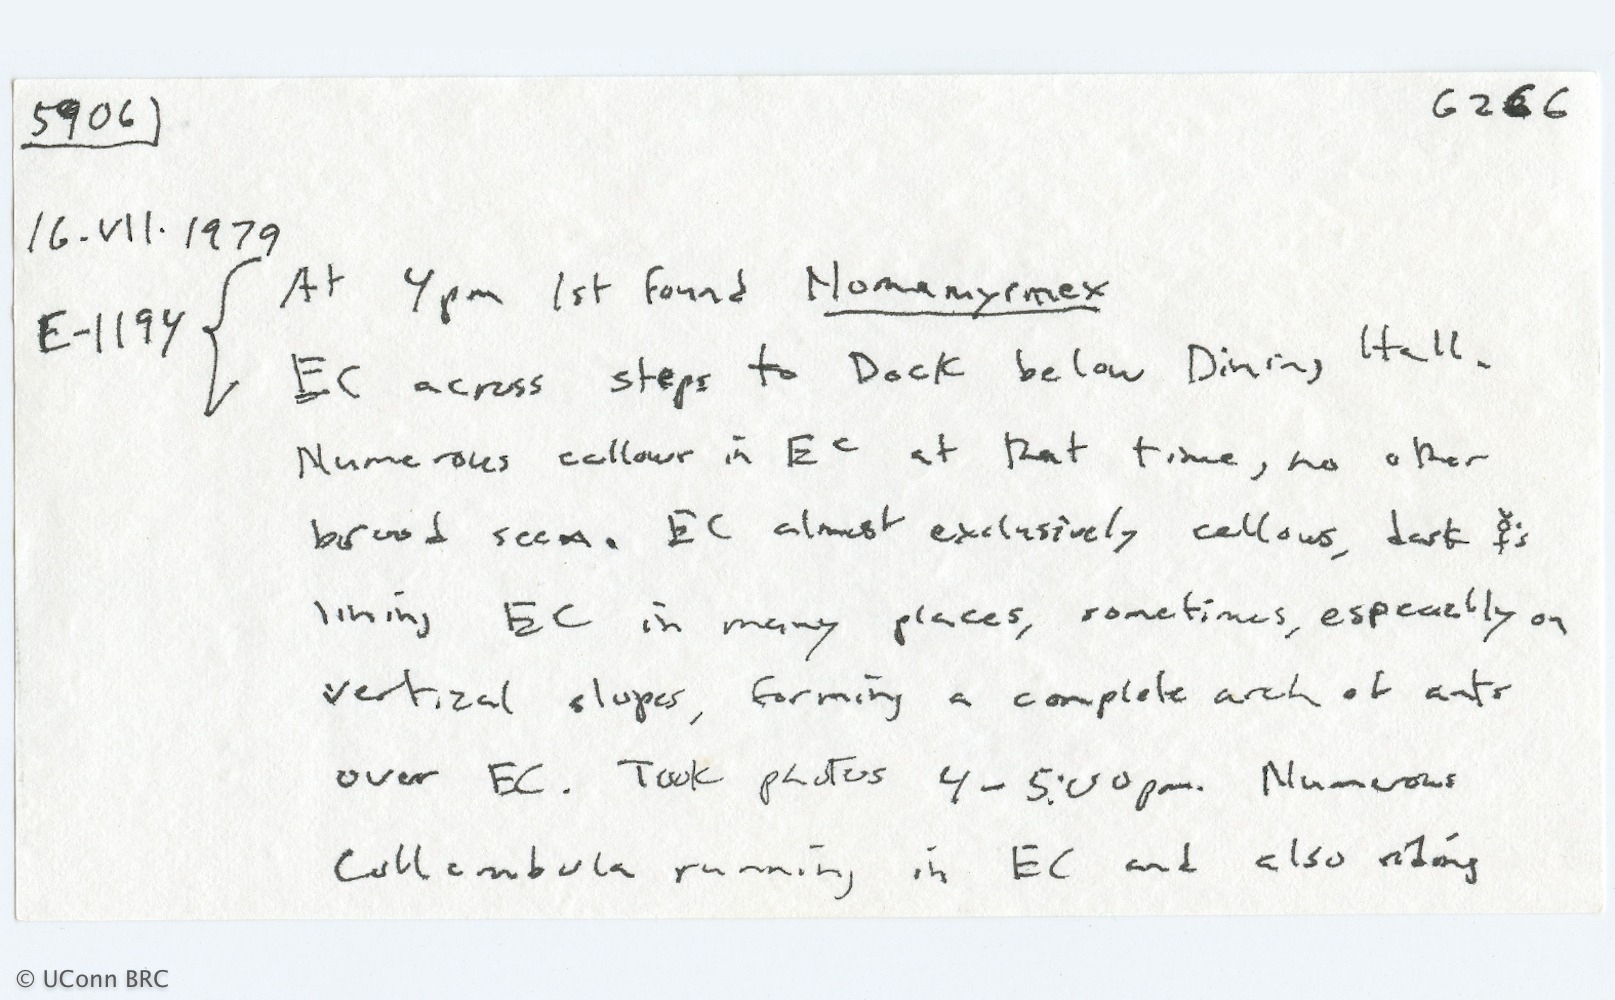 5906) 6266
16.VII.1979
E-1194 { At 4pm 1st found Nomamyrmex
EC across steps to Dock below Dining Hall.
Numerous callows in EC at that time, no other
brood seen. EC almost exclusively callows, dark ☿'s
lining EC in many places, sometimes, especially on
vertical slopes, forming a complete arch of ants
over EC. Took photos 4-5:00pm. Numerous
Collembola running in EC and also riding
© UConn BRC